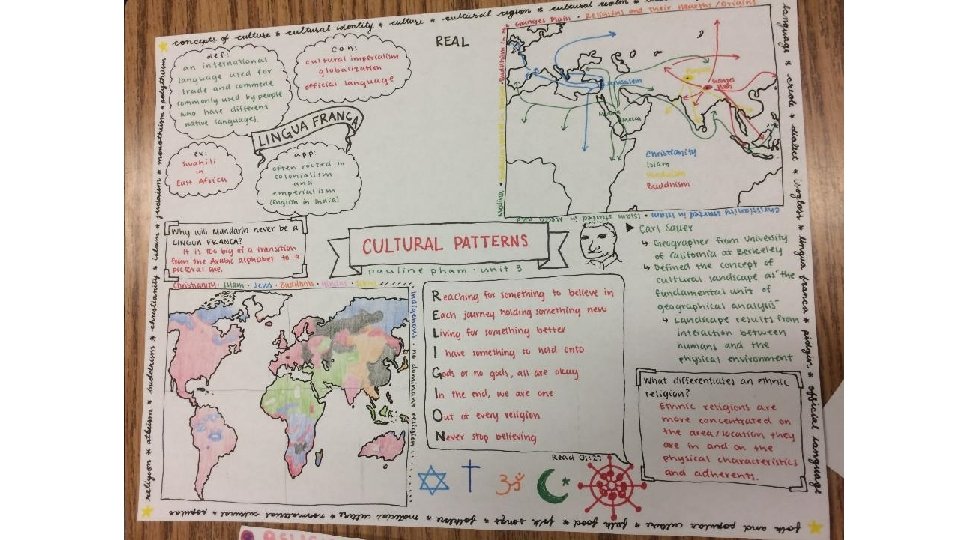 concepts of culture * cultural identity * culture * cultural region * cultural realm
Ganges Plain • Religions and Their Hearths/Origins
REAL
def:
an international
language used for
trade and commerce
commonly used by people
who have different
native languages.
con:
cultural imperialism
globalization
official language
LINGUA FRANCA
ex:
Swahili
in
East Africa
app:
often rooted in
colonialism
and
imperialism
(English in India)
Jerusalem
Mecca
Ganges
Plain
Christianity
Islam
Hinduism
Buddhism
Christianity started in
Islam started in Mecca
Why will Mandarin never be a
LINGUA FRANCA?
It is too big of a transition
from the Arabic alphabet to a
pictorial one.
CULTURAL PATTERNS
pauline pham • unit 3
Carl Sauer
Geographer from University
of California at Berkeley
Defined the concept of
cultural landscape as "the
fundamental unit of
geographical analysis"
Landscape results from
interaction between
humans and the
physical environment
Christianity • Islam • Jews • Buddhism • Hindus
indigenous • no dominant religion
Reaching for something to believe in
Each journey holding something new
Living for something better
I have something to hold onto
Gods or no gods, all are okay
In the end, we are one
Out of every religion
Never stop believing
What differentiates an ethnic
religion?
Ethnic religions are
more concentrated on
the area/location they
are in and on the
physical characteristics
and adherents.
language * creole * dialect * isogloss * lingua franca * pidgin * official language
religion * atheism * hinduism * christianity * islam * judaism * monotheism * polytheism
folk and popular culture * folk food * folk songs * folklore * material culture * nonmaterial culture * popular